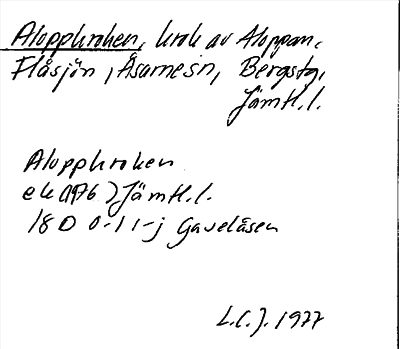 Aloppkroken, krok av Aloppan,
Flåsjön, Åsarnesn, Bergstg,
Jämtl.l.
Aloppkroken
ek (1976) Jämtl.l.
18 D 0-1 i-j Gaveläsen
L.C.J. 1977